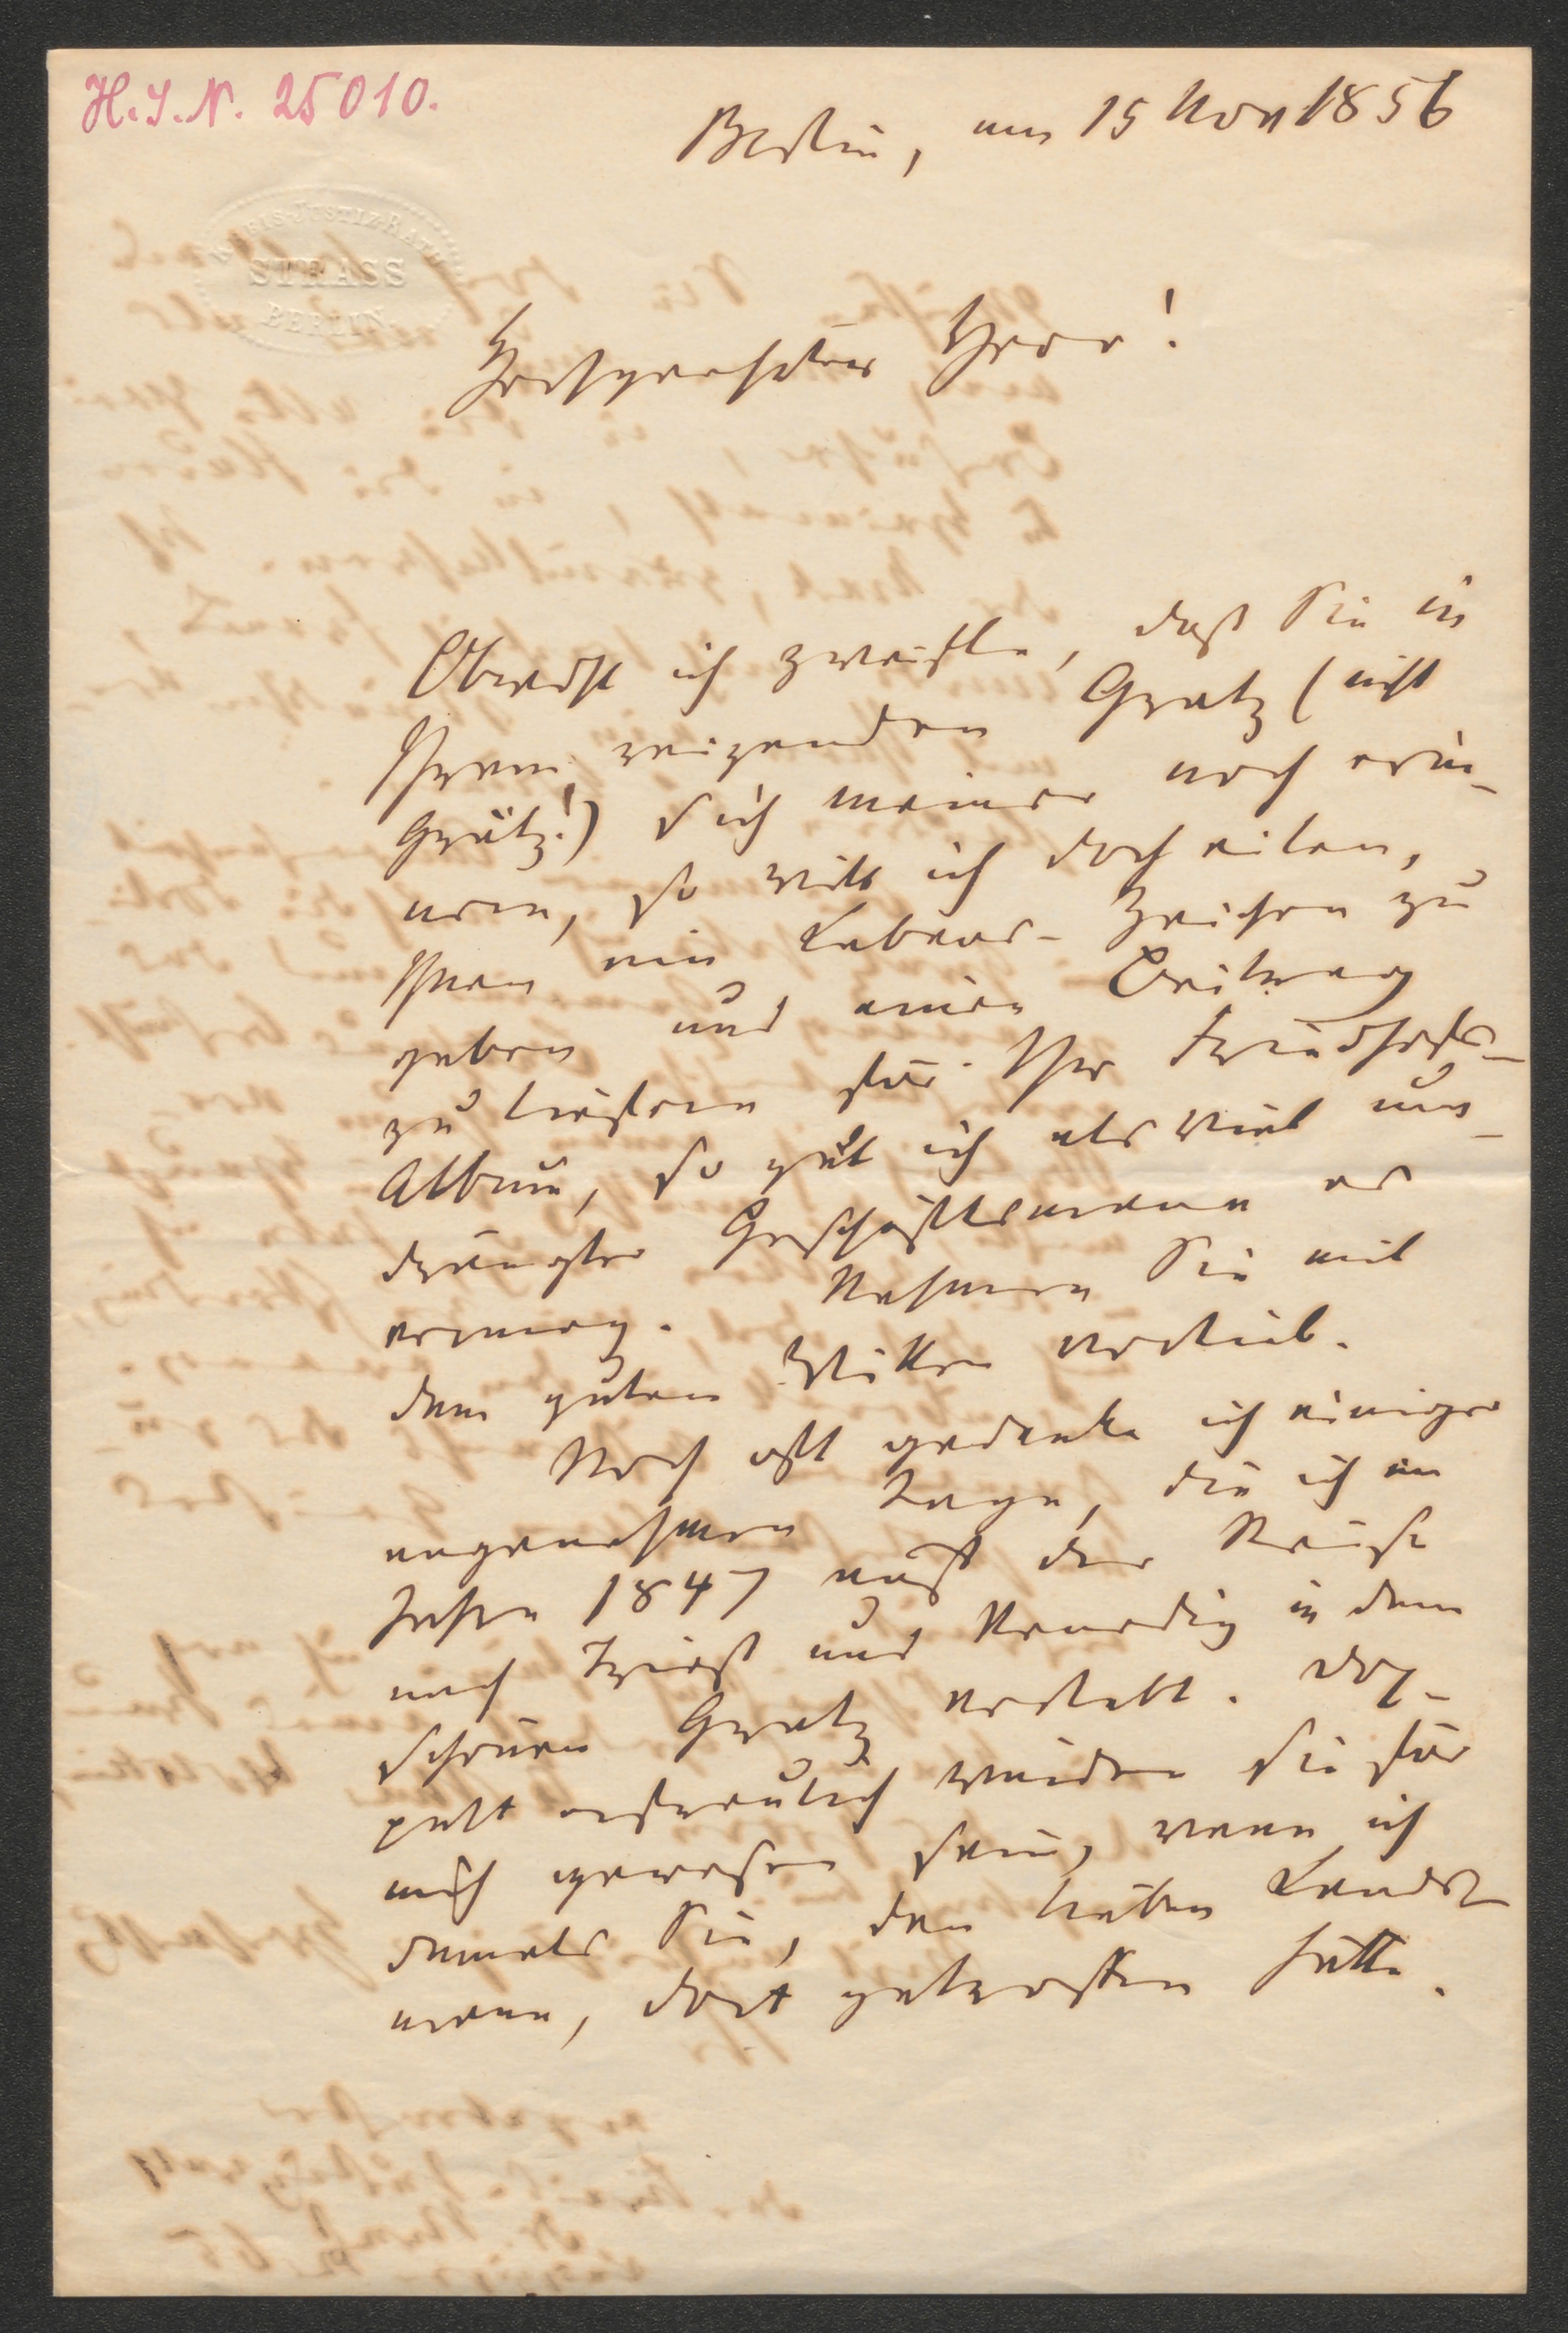 H.I.N. 25010.
Berlin, am 15 Nov 1856
KREIS-JUSTIZ-RATH
STRASS
BERLIN
Hochgeehrter Herr!
Obwohl ich zweifle, daß Sie in
Ihrem reizenden Gratz (nicht
Grätz!) sich meiner noch erin-
nern, so will ich doch eilen,
Ihnen ein Lebens-Zeichen zu
geben und einen Beitrag
zu liefern für Ihr Friedhofs-
Album, so gut ich als viel um-
drängter Geschäftsmann es
vermag. Nehmen Sie mit
dem guten Willen vorlieb.
Noch oft gedenke ich einiger
angenehmen Tage, die ich im
Jahre 1847 auf der Reise
nach Triest und Venedig in dem
schönen Gratz verlebt. Dop-
pelt erfreulich würden sie für
mich gewesen sein, wenn ich
damals Sie, den lieben Lands-
mann, dort getroffen hätte.